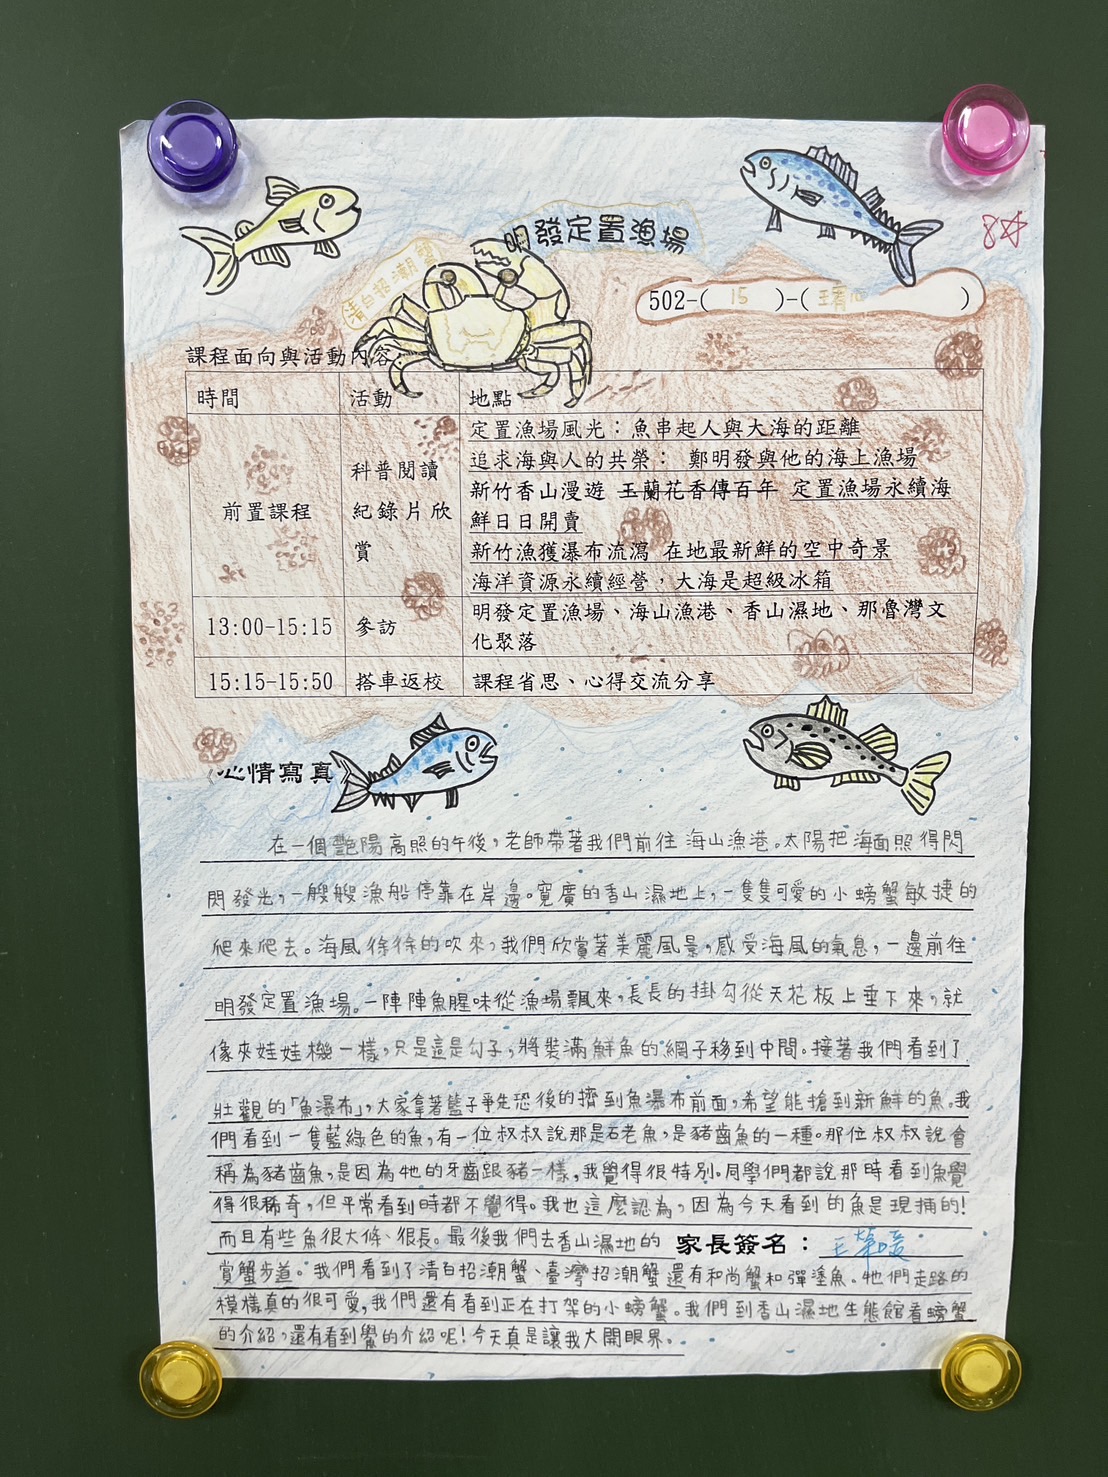 明發定置漁場
清白招潮蟹
8☆
502-( 15 )-( 王 )
課程面向與活動內容：
時間 活動 地點
前置課程 科普閱讀 紀錄片欣賞
定置漁場風光：魚串起人與大海的距離
追求海與人的共榮： 鄭明發與他的海上漁場
新竹香山漫遊 玉蘭花香傳百年 定置漁場永續海
鮮日日開賣
新竹漁獲瀑布流瀉 在地最新鮮的空中奇景
海洋資源永續經營，大海是超級冰箱
13:00-15:15 參訪 明發定置漁場、海山漁港、香山濕地、那魯灣文
化聚落
15:15-15:50 搭車返校 課程省思、心得交流分享
《心情寫真》
在一個艷陽高照的午後，老師帶著我們前往海山漁港。太陽把海面照得閃
閃發光，一艘艘漁船停靠在岸邊。寬廣的香山濕地上，一隻隻可愛的小螃蟹敏捷的
爬來爬去。海風徐徐的吹來，我們欣賞著美麗風景，感受海風的氣息，一邊前往
明發定置漁場。一陣陣魚腥味從漁場飄來，長長的掛勾從天花板上垂下來，就
像夾娃娃機一樣，只是這是勾子，將裝滿鮮魚的網子移到中間。接著我們看到了
壯觀的「魚瀑布」，大家拿著籃子爭先恐後的擠到魚瀑布前面，希望能搶到新鮮的魚。我
們看到一隻藍綠色的魚，有一位叔叔說那是石老魚，是豬齒魚的一種。那位叔叔說會
稱為豬齒魚，是因為牠的牙齒跟豬一樣，我覺得很特別。同學們都說那時看到魚覺
得很稀奇，但平常看到時都不覺得。我也這麼認為，因為今天看到的魚是現捕的！
而且有些魚很大條、很長。最後我們去香山濕地的 家長簽名：
賞蟹步道。我們看到了清白招潮蟹、臺灣招潮蟹還有和尚蟹和彈塗魚。牠們走路的
模樣真的很可愛，我們還有看到正在打架的小螃蟹。我們到香山濕地生態館看螃蟹
的介紹，還有看到鱟的介紹呢！今天真是讓我大開眼界。